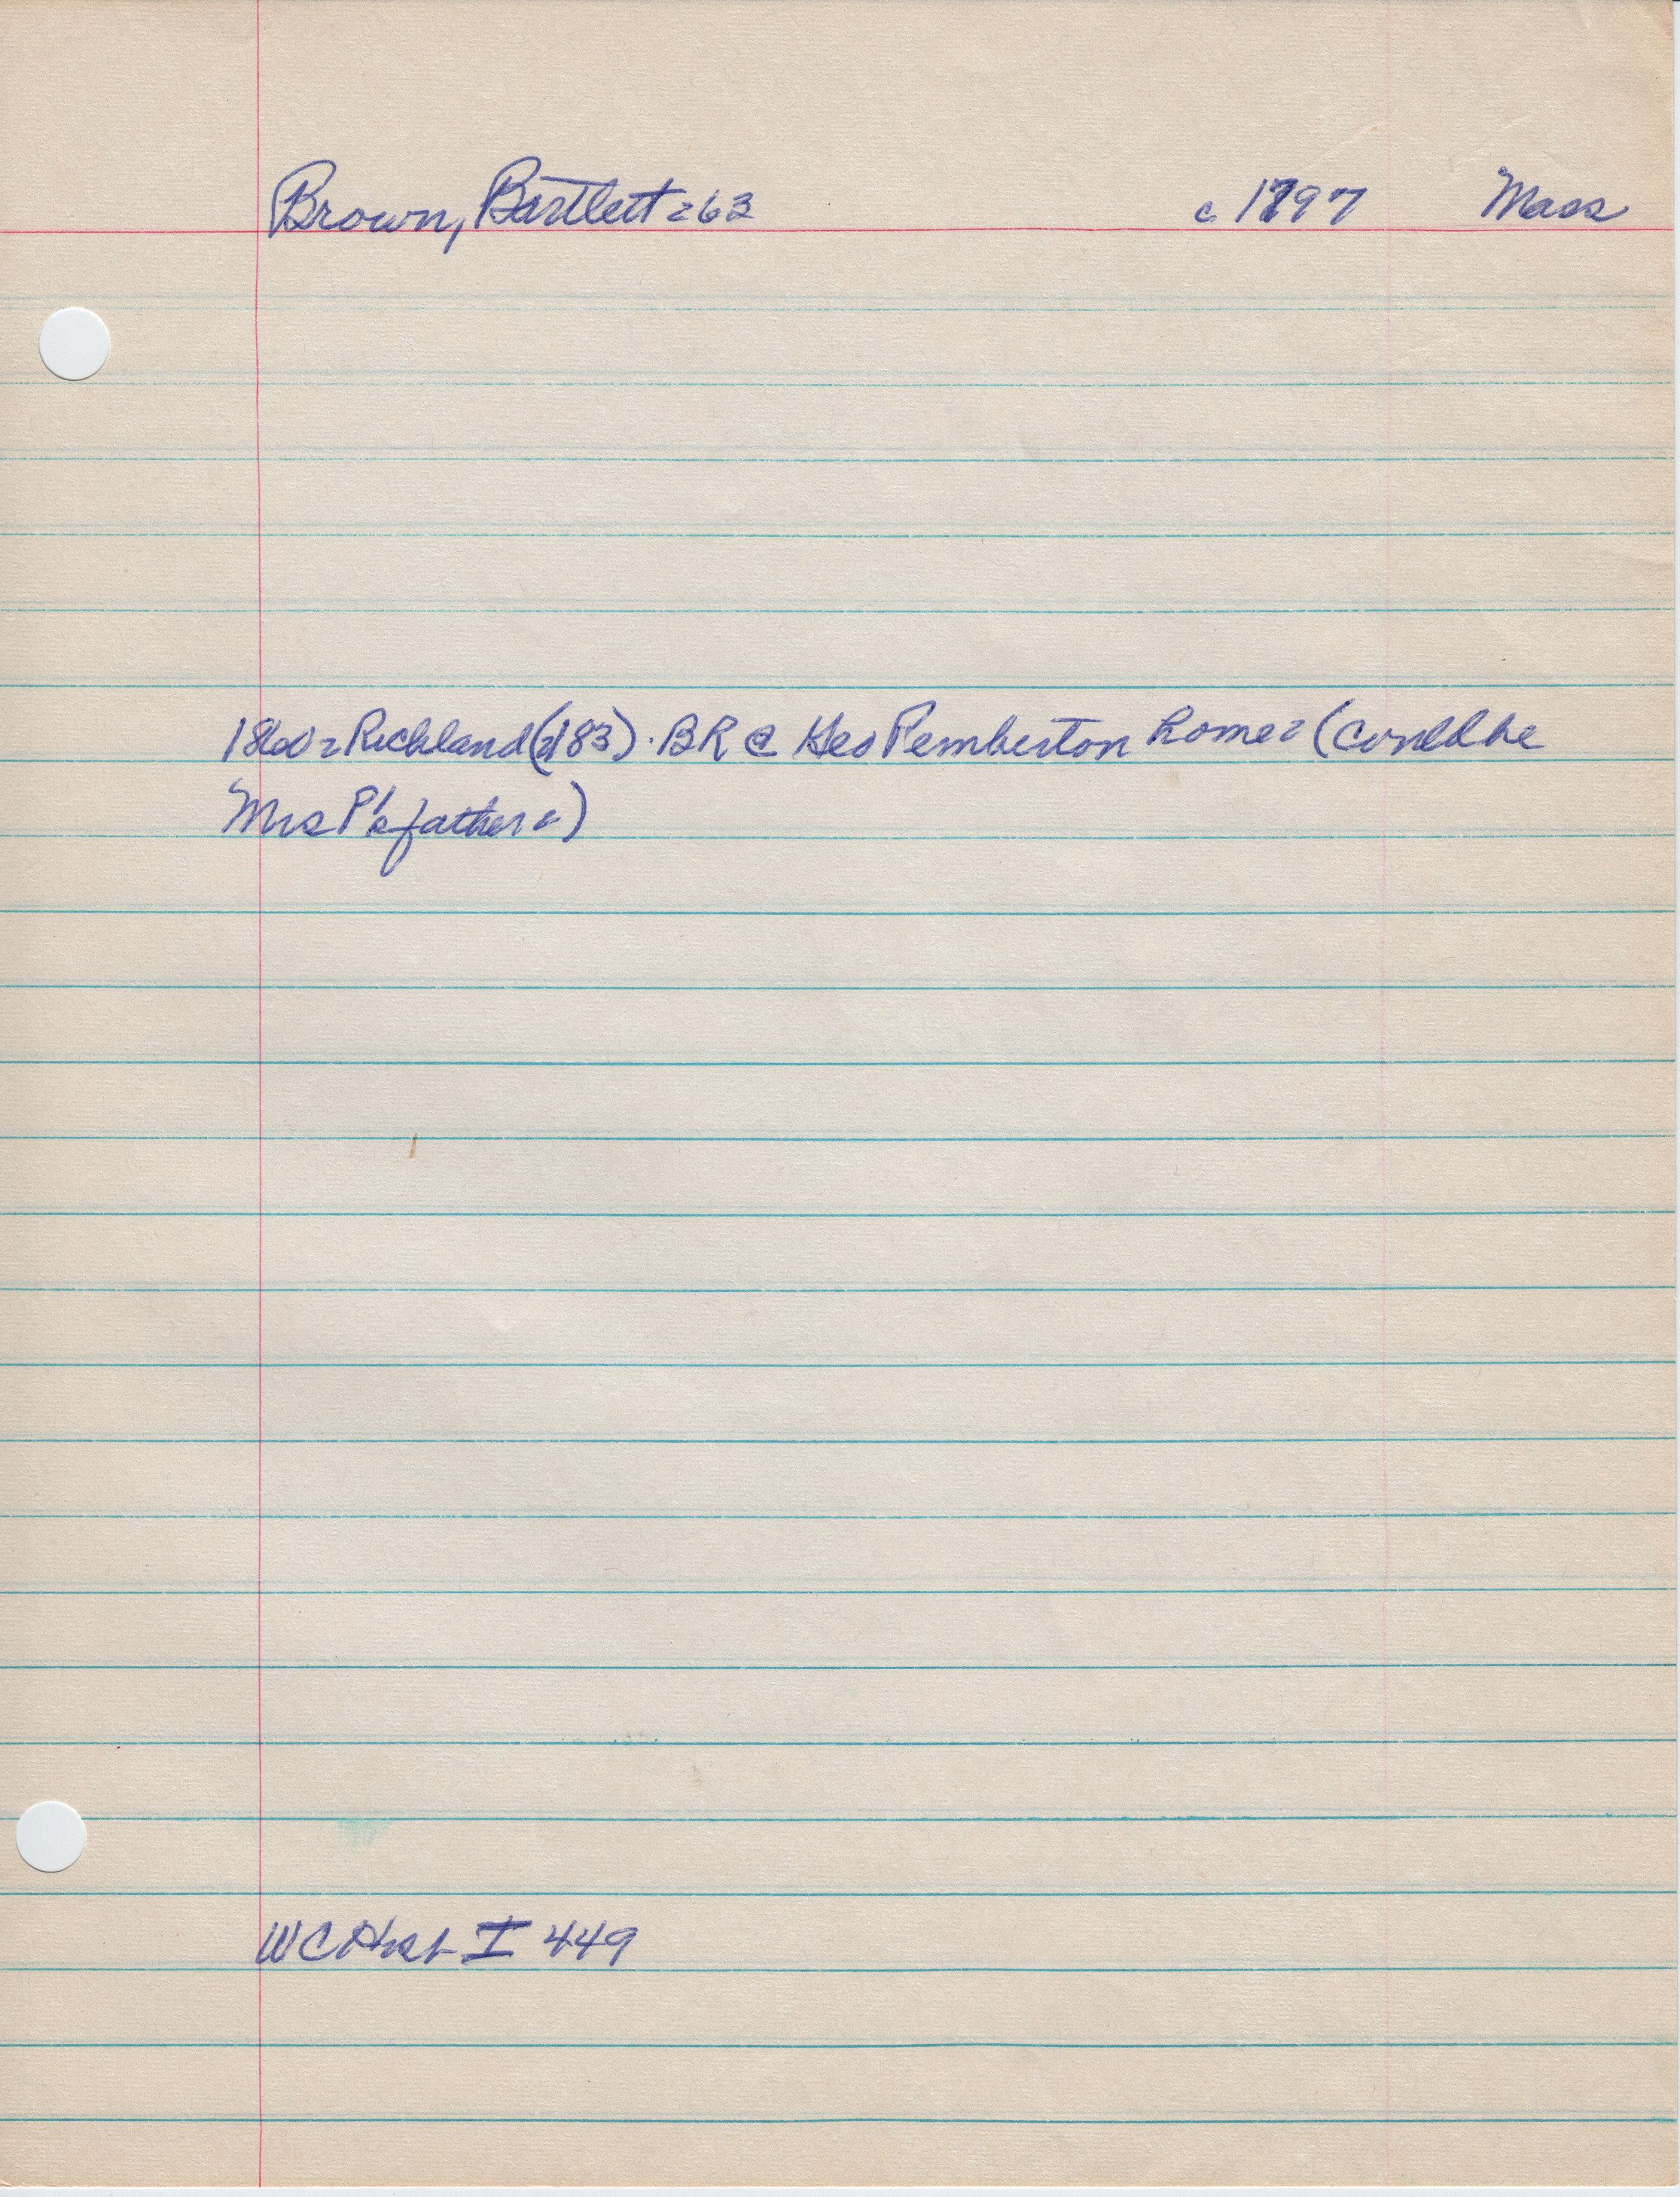 Brown, Bartlett = 63 c 1797 Mass
1860 = Richland (183). BR @ Geo Pemberton home = (could be
Mrs P's father =)
WC Hist I 449